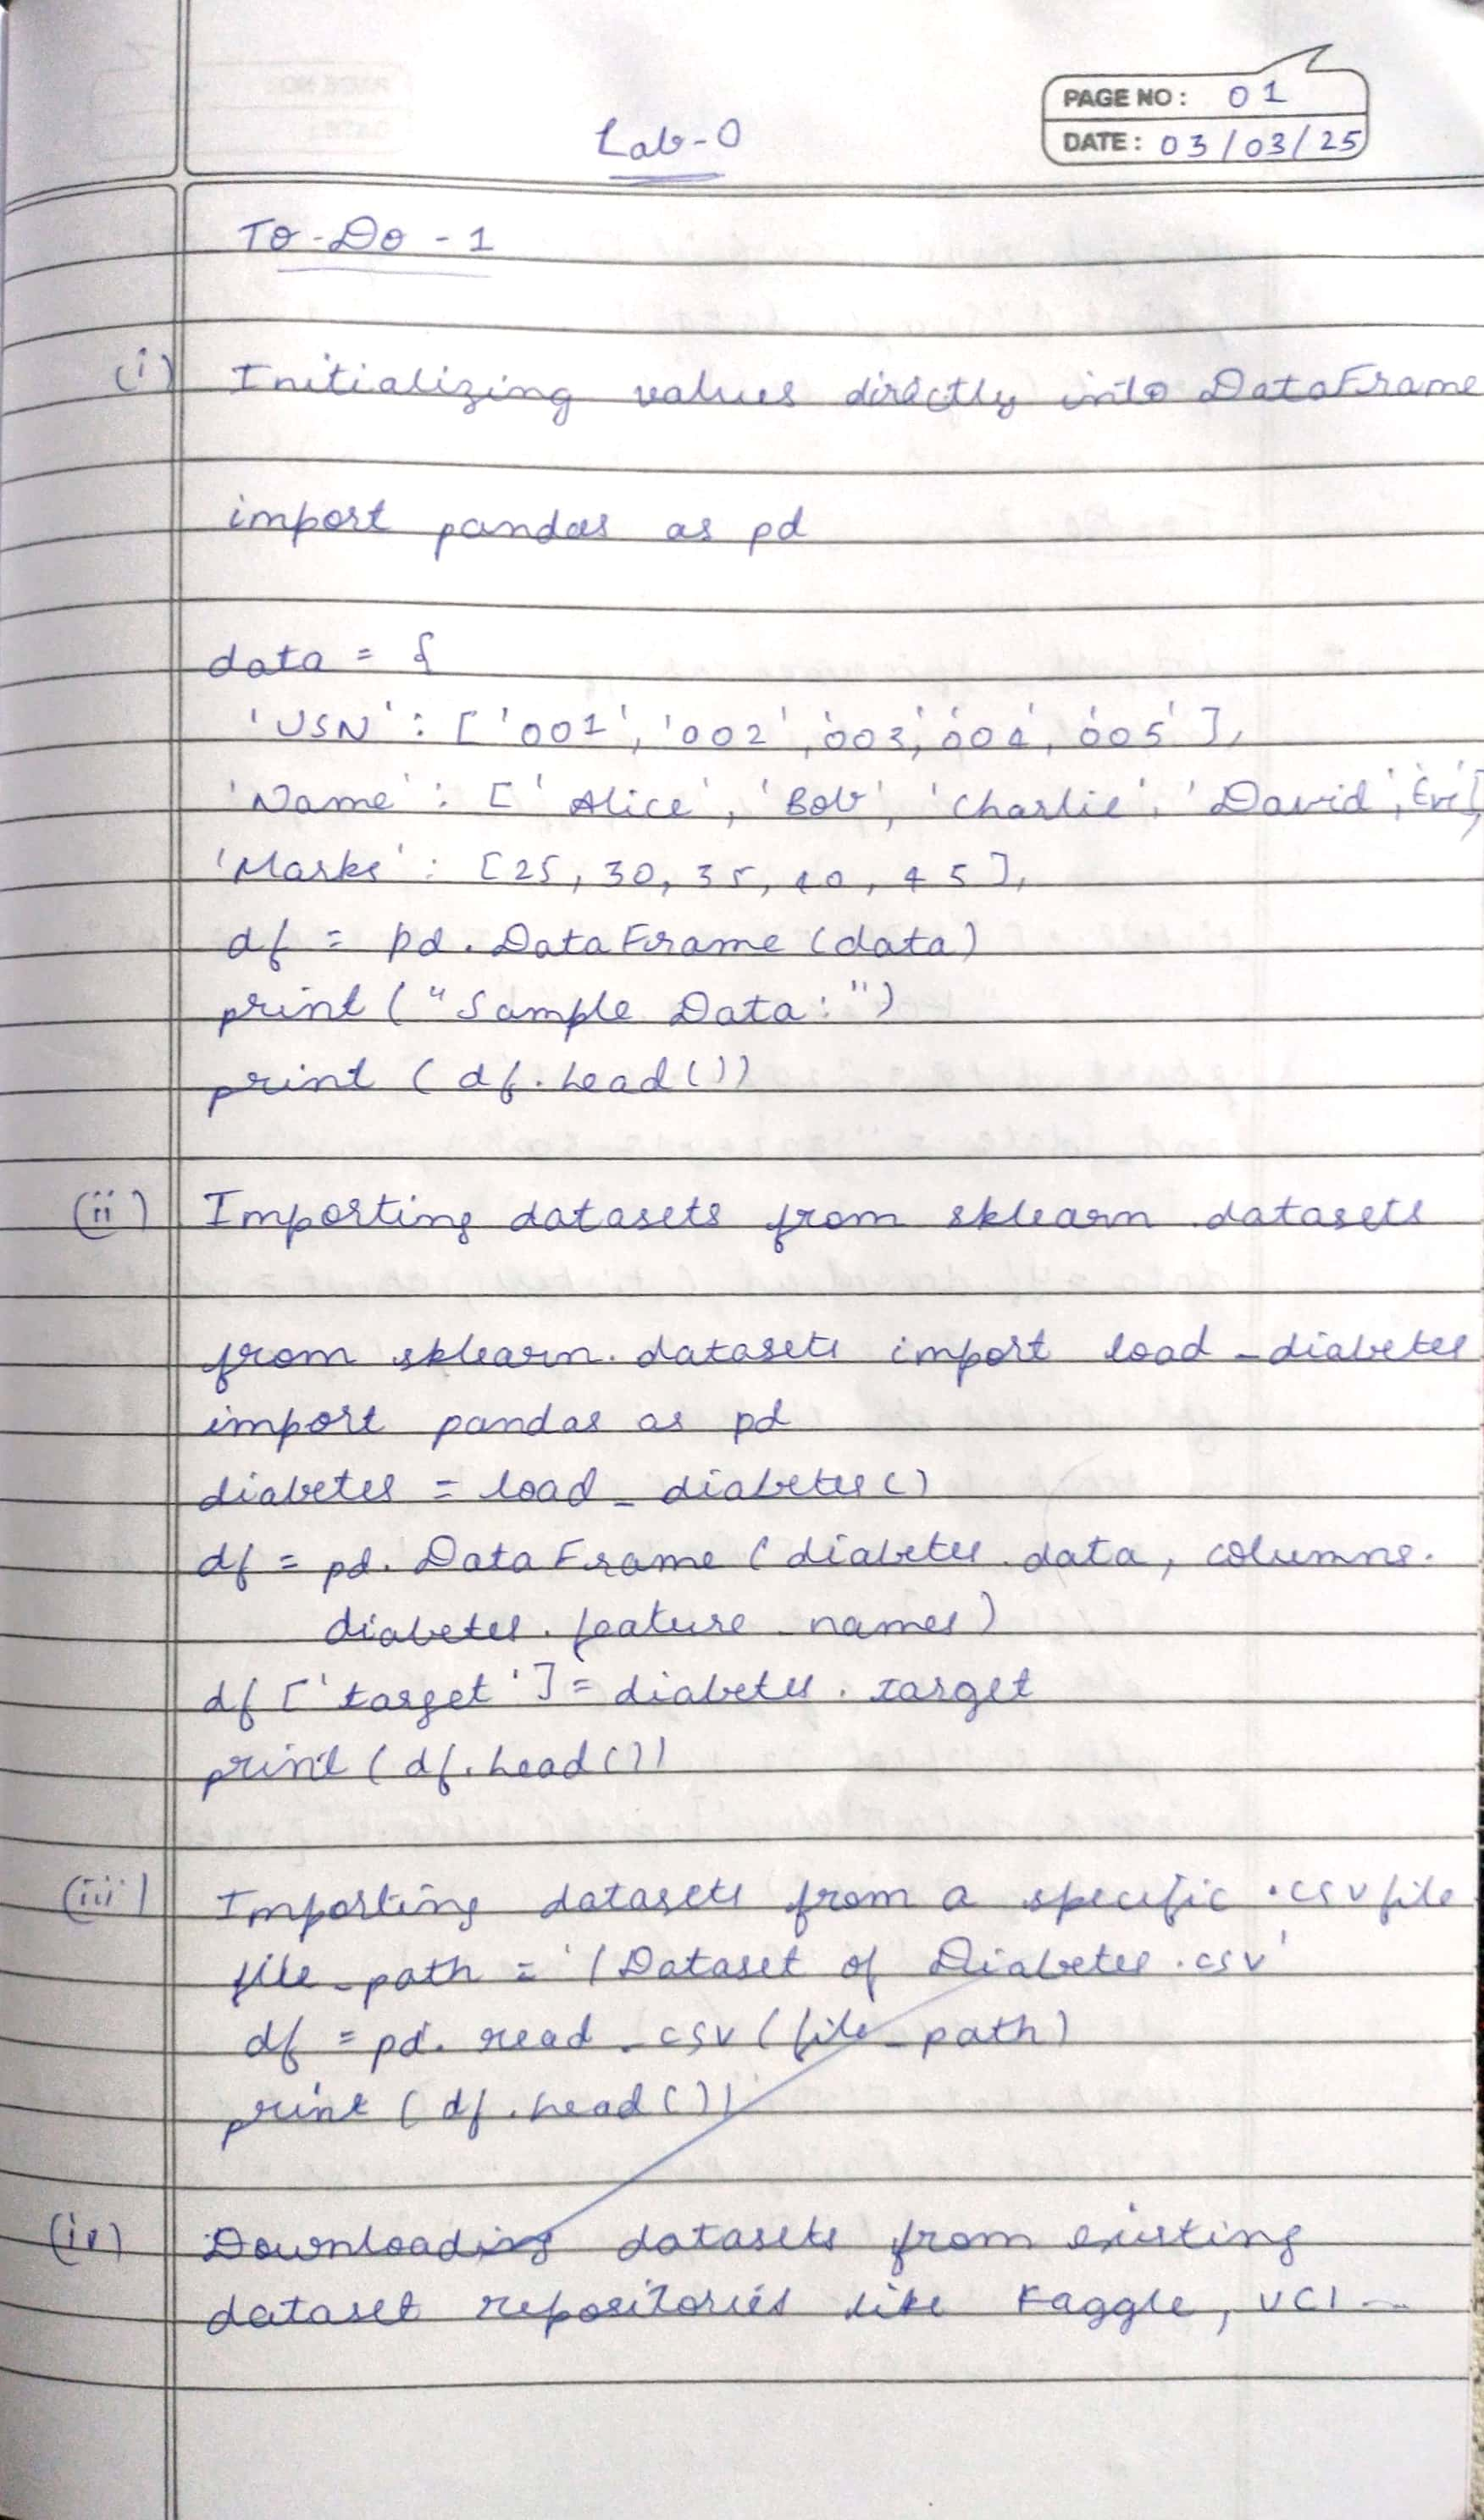 PAGE NO: 01
DATE: 03/03/25
Lab-0
To-Do-1
(i) Initializing values directly into DataFrame
import pandas as pd
data = {
'USN': ['001', '002', '003', '004', '005'],
'Name': ['Alice', 'Bob', 'Charlie', 'David', 'Eve'],
'Marks': [25, 30, 35, 40, 45],
df = pd.DataFrame(data)
print("Sample Data:")
print(df.head())
(ii) Importing datasets from sklearn.datasets
from sklearn.datasets import load_diabetes
import pandas as pd
diabetes = load_diabetes()
df = pd.DataFrame(diabetes.data, columns.
diabetes.feature_names)
df['target'] = diabetes.target
print(df.head())
(iii) Importing datasets from a specific .csv file
file_path = '/Dataset of Diabetes.csv'
df = pd.read_csv(file_path)
print(df.head())
(iv) Downloading datasets from existing
dataset repositories like Kaggle, UCI